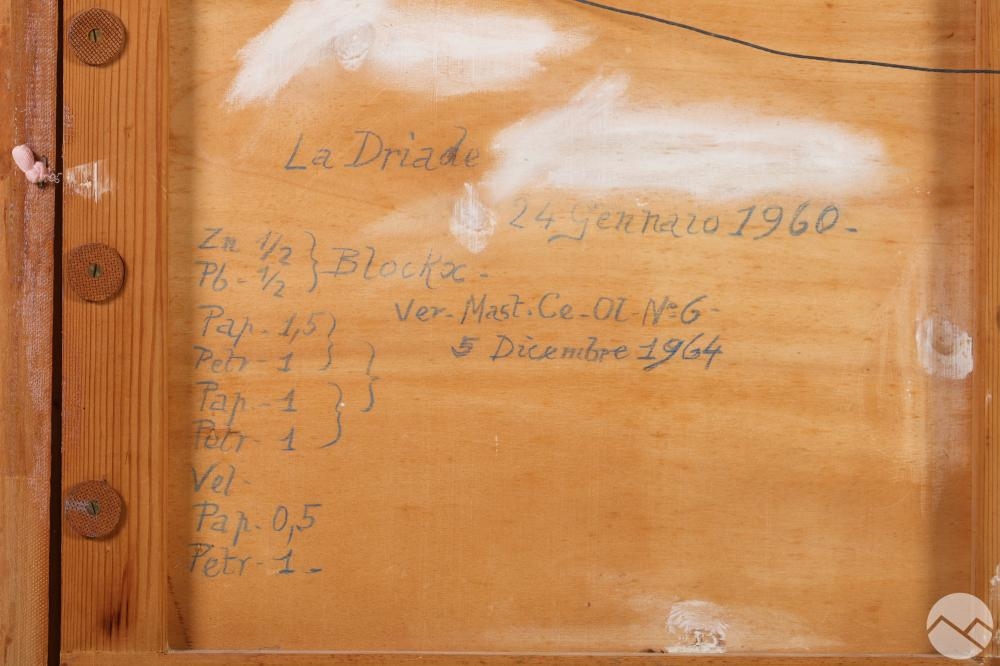 La Driade
24 Gennaio 1960-
Zn 1/2
Pb - 1/2
Blockx -
Pap - 1,5
Petr - 1
Ver - Mast. Ce - Ol - Nº 6 -
5 Dicembre 1964
Pap - 1
Petr - 1
Vel -
Pap - 0,5
Petr - 1 -